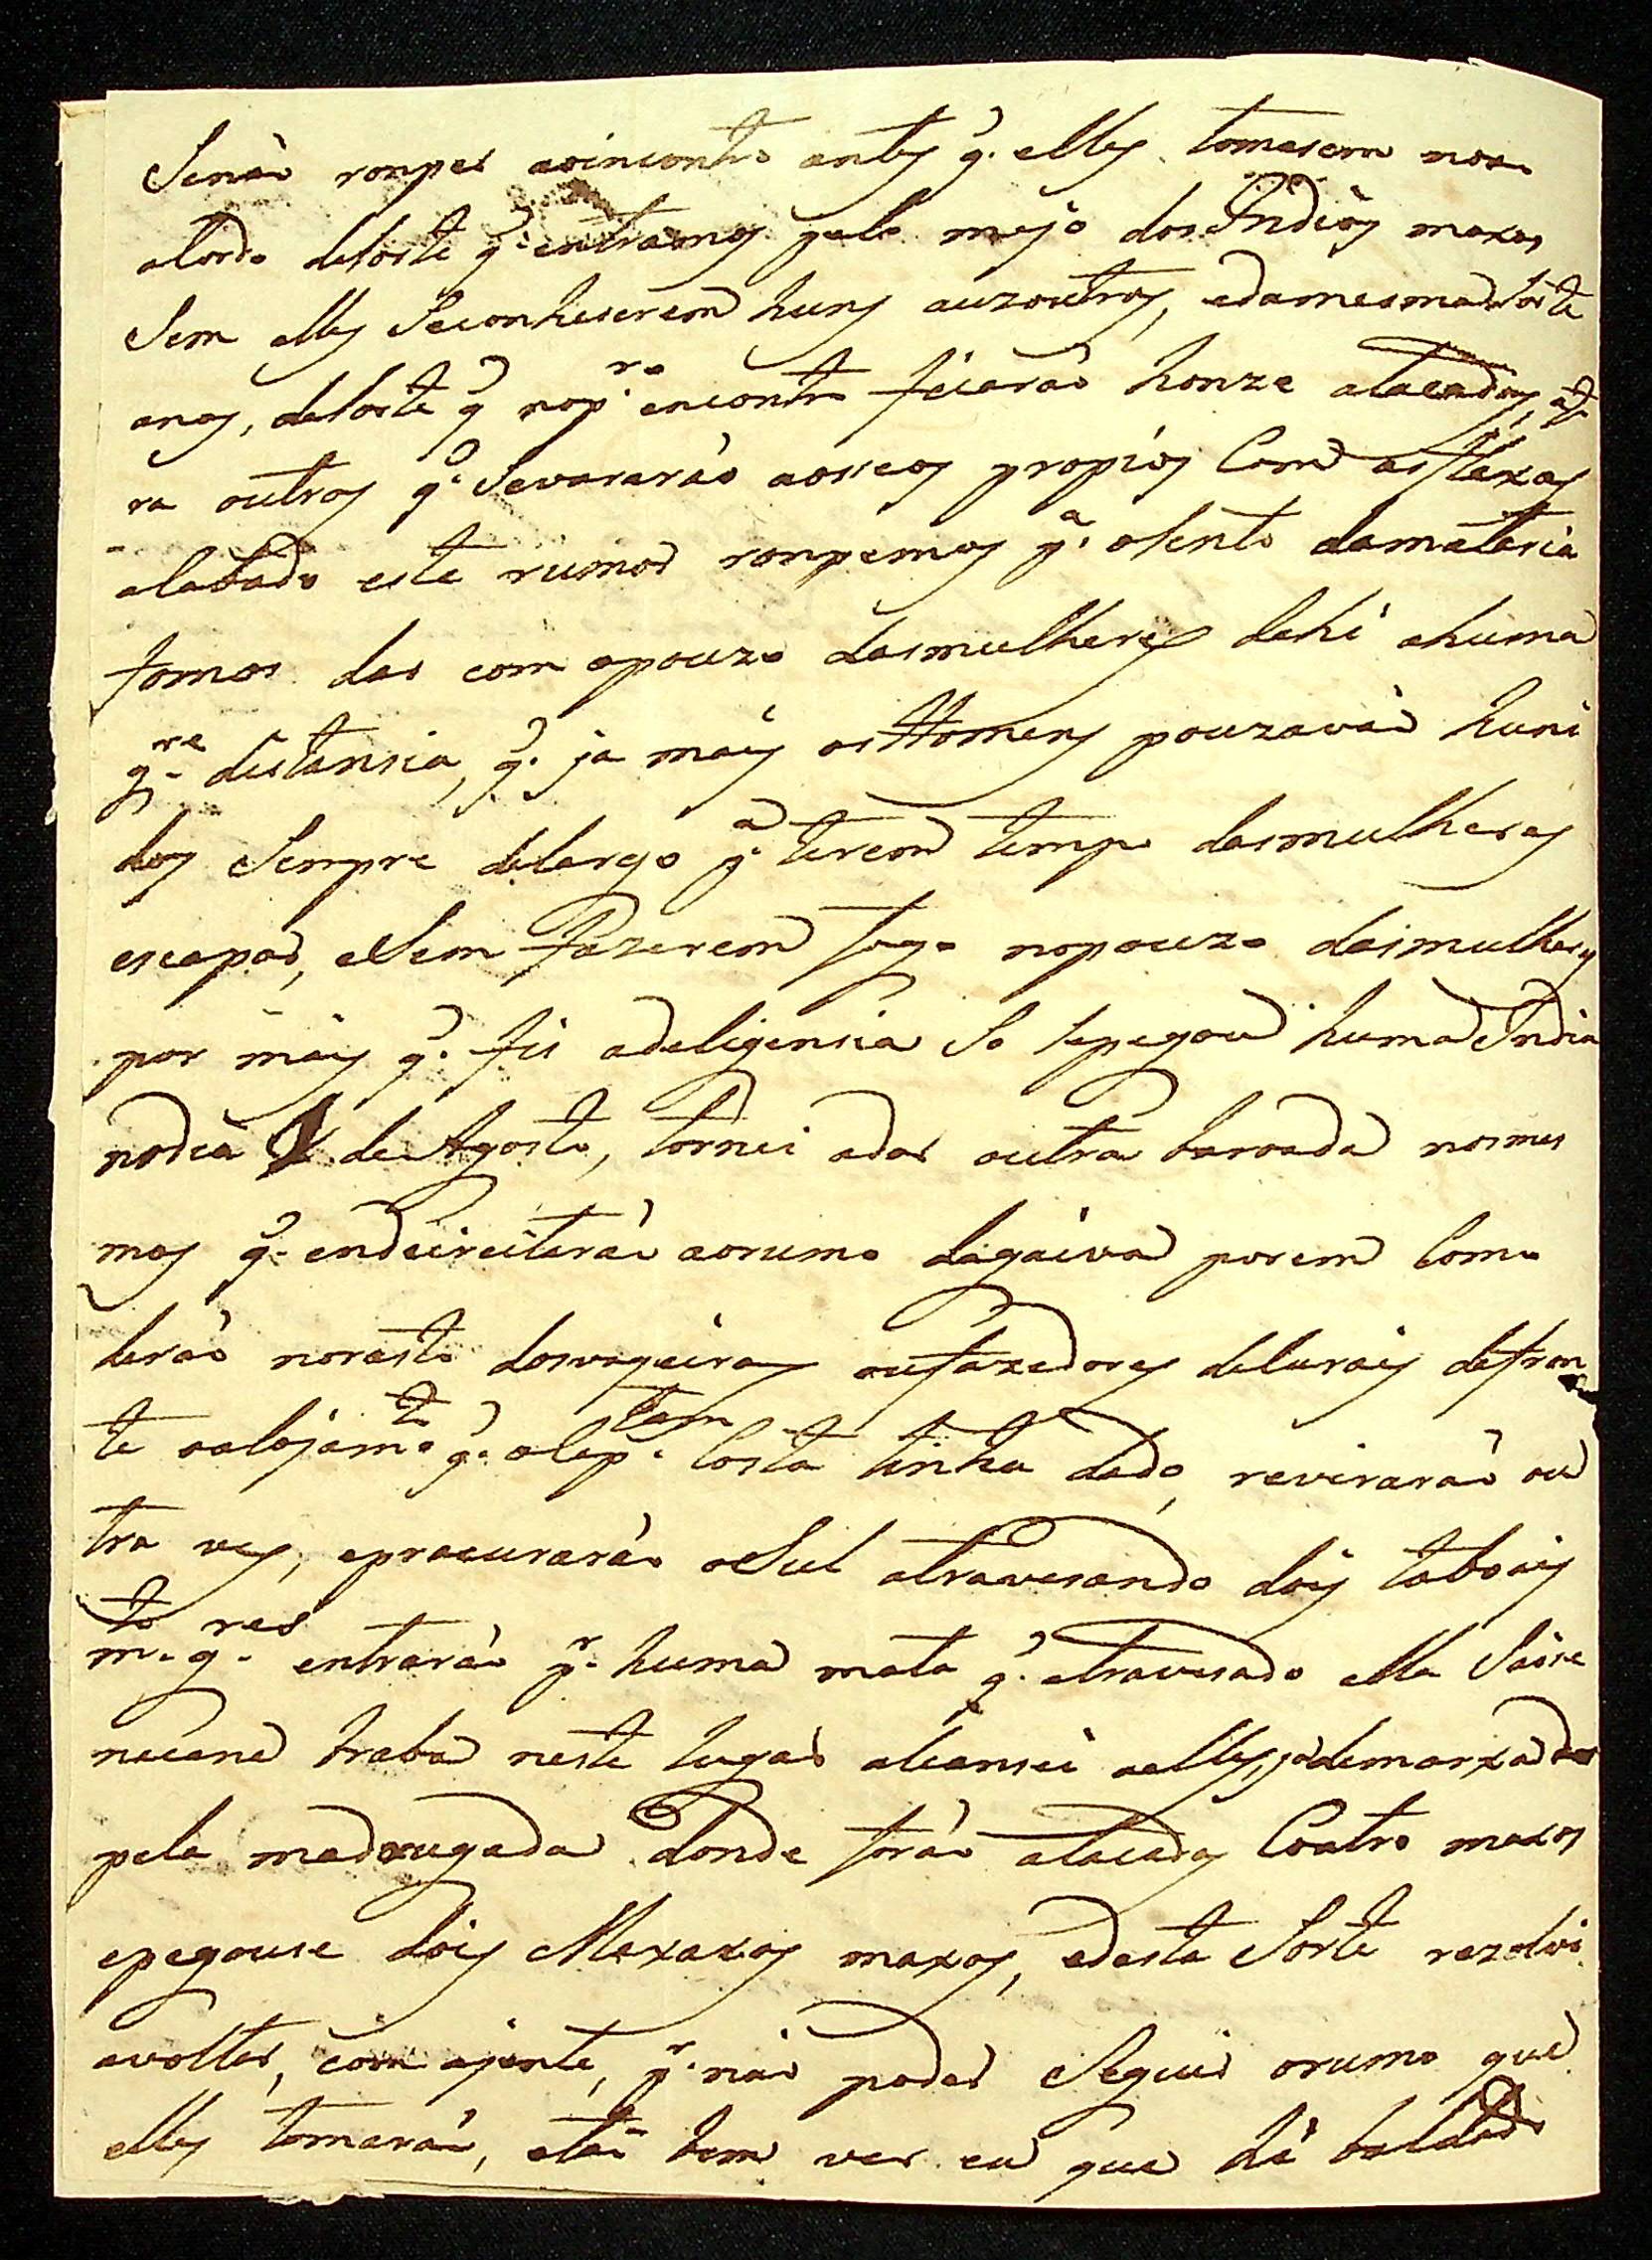 Senaõ ronper aoincontro antes q̃. elles tomasem nosa
alordo desorte q̃. entramos pelo mejo dos Indios maxos
Sem elles Seconheserem huns auzoutros, edamesmasorte
anos, desorte q̃ nop.ro encontro ficaraõ honze atacados, afo
ra outros q̃. Sevararaõ aosseos propios Com asflexas
acabado este rumor ronpemos p.a osento damataria
fomos dar com opouzo dasmulheres dehi ahuma
g.re distansia, q̃. ja mais osHomens pouzavaõ huni
dos Sempre delargo p.a terem tempo dasmulheres
escapar, eSem Fazerem fogo nopouzo dasmulheres
por mais q̃. fis adeligensia So sepegou huma India
nodia de Agosto, tornei adar outra baroada nosmes
mos q̃. endereitaraõ aorumo daGaiva porem Como
deraõ norasto dosvaqueiros oufazedores decuraes defron
te aalojam.to q̃. oCap.tam Costa tinha dado, reviraraõ ou
tra ves, eprocuraraõ oSul atravesando dois taboais
m.to g.res entraraõ p.r huma mata q̃. atravesado ella Saise
necend braba neste lugar alcansei aelles, jademarxada
pela madrugada donde foraõ atacados Coatro maxos
epegouse dois Maxaxos maxos, edesta Sorte rezolvi
avoltar, com ajente, p.r naõ poder Seguir orumo que
elles tomaraõ, etaõ bem ver eu que hé baldado